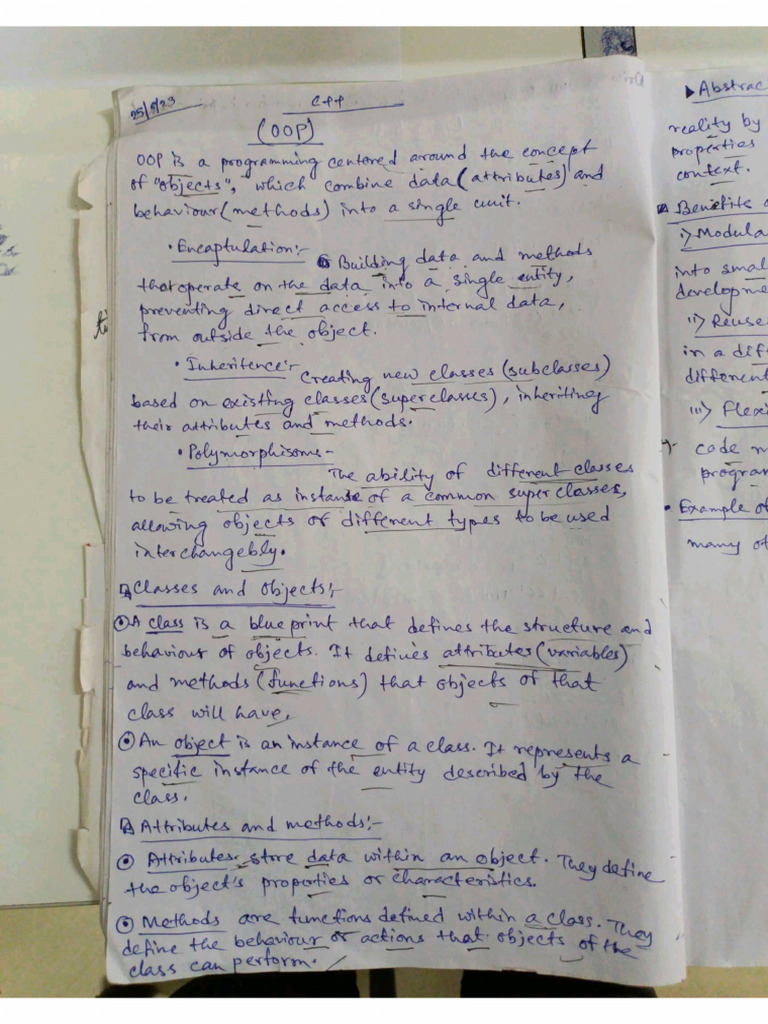 25/8/23
CPP
(OOP)
OOP is a programming centered around the concept
of "objects", which combine data (attributes) and
behaviour (methods) into a single unit.
• Encaptulation:-
Building data and methods
that operate on the data into a single entity,
preventing direct access to internal data,
from outside the object.
• Inheritence:-
Creating new classes (subclasses)
based on existing classes (superclasses), inheriting
their attributes and methods.
• Polymorphisoms-
The ability of different classes
to be treated as instanse of a common super classes,
allowing objects of different types to be used
interchangebly.
Classes and objects:-
A class is a blueprint that defines the structure and
behaviour of objects. It defines attributes (variables)
and methods (functions) that objects of that
class will have,
An object is an instance of a class. It represents a
specific instance of the entity described by the
class.
Attributes and methods:-
Attributes. store data within an object. They define
the object's properties or characteristics.
Methods are functions defined within a class. They
define the behaviour or actions that objects of the
class can perform.
▶ Abstrac
reality by
properties
context.
Benefits
i) Modula
into smal
developme
ii) Reuse
in a diff
different
iii) Flexi
code m
program
• Example of
many of